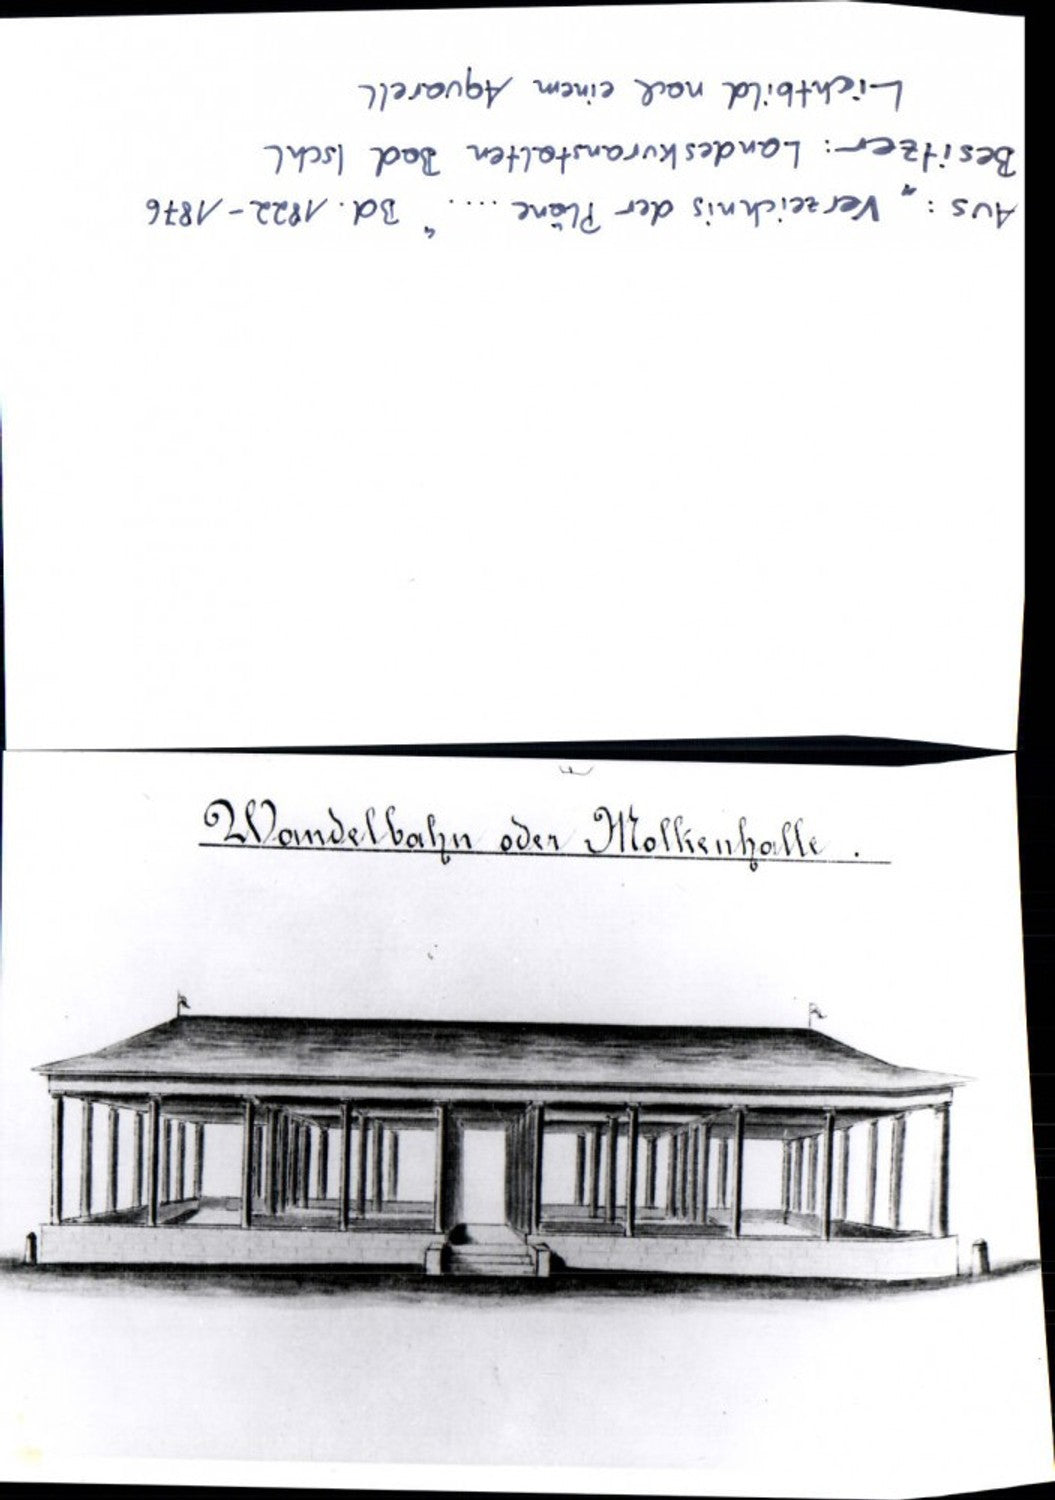 Aus: „Verzeichnis der Pläne ...." Bd. 1822-1876
Besitzer: Landeskuranstalten Bad Ischl
Lichtbild nach einem Aquarell
Wandelbahn oder Molkenhalle.